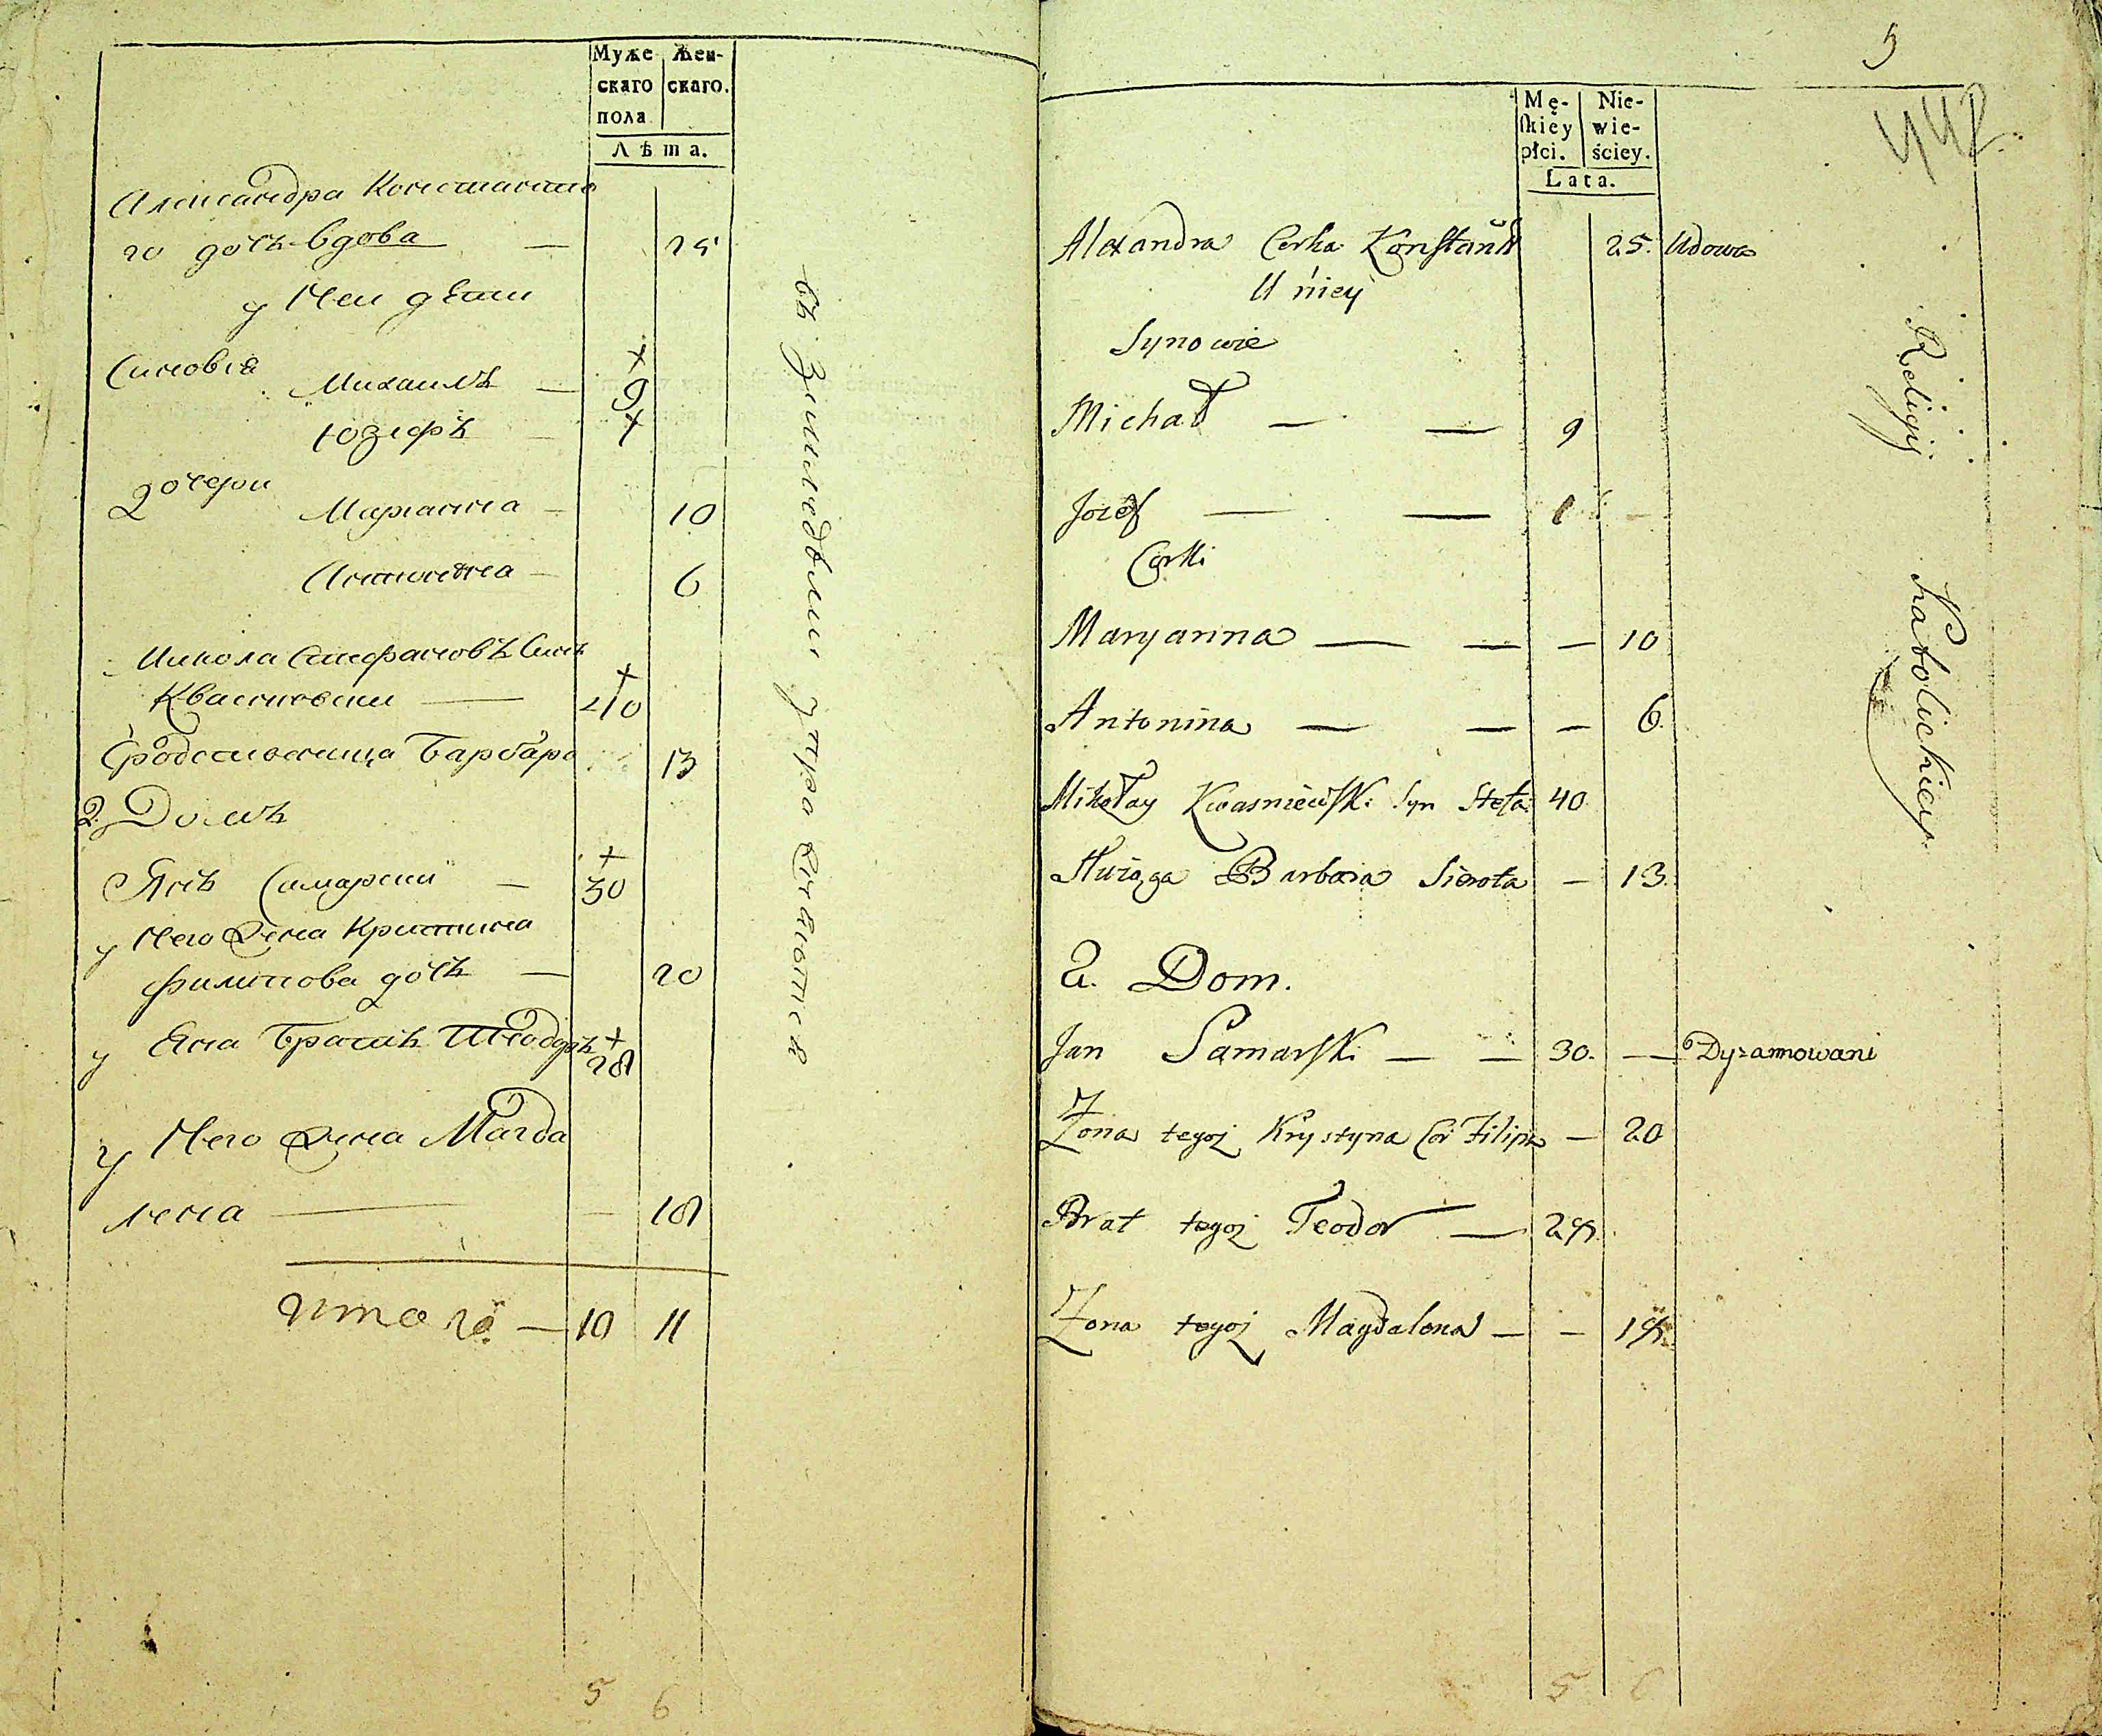 Муже
скаго
пола
Жен-
скаго.
Лѣта.
Александра Константино
го дочь вдова — 25
у Неи дѣти
Синовіа Михаилъ — 9
Юзефъ —
дочери Марианна — 10
Антонена — 6
Никола Стефановъ Синъ
Квасновски — 40
Барбара 13
2. Домъ
Янъ Самарски — 30
у Него жена Кристина
филипова дочъ — 20
у Яна Братъ Теодоръ 28
у Него жена Магда
лена — 18
Итого — 10 11
5 6
5
442
Mę-
skiey
płci.
Nie-
wie-
ściey.
Lata.
Alexandra Corka Konstan 25. Wdowa
U niey
Synowie
Michał — — 9
Jozef — — 1
Corki
Maryanna — — — 10
Antonina — — — 6.
Mikołay Kwasniewski Syn Stefa: 40
Służąga Barbara Sierota — 13.
2. Dom.
Jan Samarski — — 30. —
Zona tegoż Krystyna Cor Filipa — 20
Brat tegoż Teodor — 28.
Zona tegoż Magdalena — — 18.
Religij Katolickiey
5 6